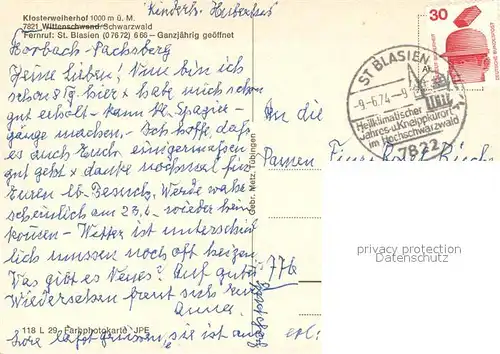 Kinderh. Herbertus
Klosterweiherhof 1000 m ü. M.
7821 Wittenschwand Schwarzwald
Fernruf: St. Blasien (0 76 72) 6 66 - Ganzjährig geöffnet
Horbach-Dachsberg
Meine Lieben! Nun bin ich
schon 8 Tg. hier & habe mich schon
gut erholt - kann kl. Spazier-
gänge machen. - Ich hoffe, daß
es auch Euch einigermaßen
gut geht & danke nochmal für
Euren lb. Besuch. Werde wahr
scheinlich am 23.4. wieder heim
kommen - Wetter ist unterschied
lich müssen noch oft heizen
Was gibt es Neues? Auf gutes
Wiedersehen freut sich
Anne
läßt grüssen, sie ist auch
118 L 29 Farbphotokarte JPE
Gebr. Metz, Tübingen
30
DEUTSCHE BUNDESPOST
ST BLASIEN
-9.-6.74-9
Heilklimatischer
Jahres-u.Kneippkurort
im Hochschwarzwald
7822
An die
776
privacy protection
Datenschutz